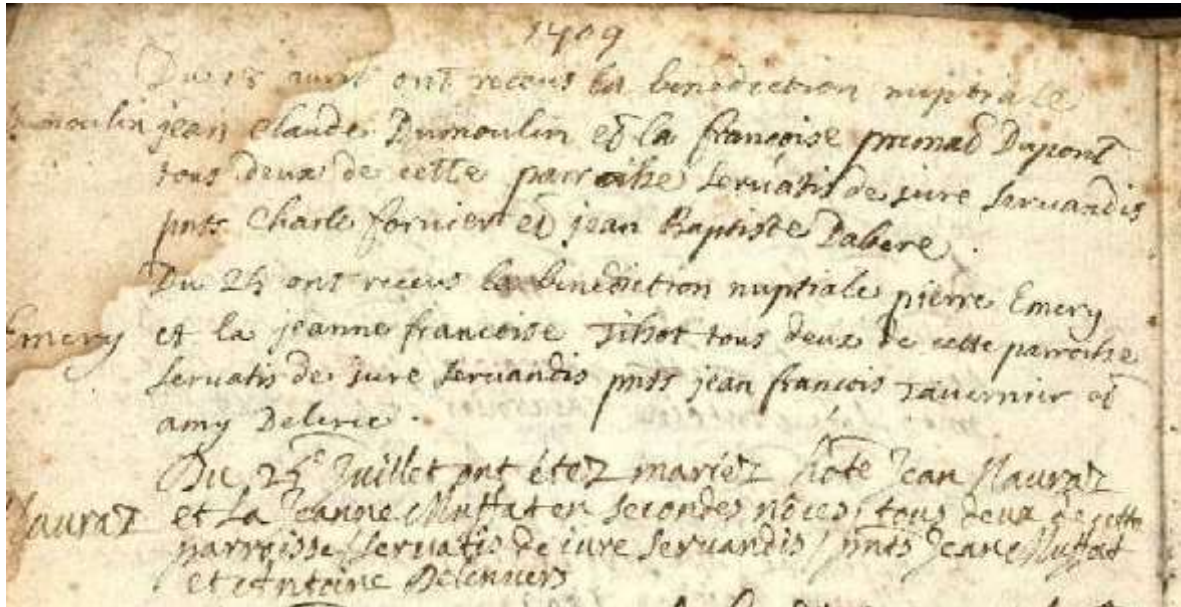 1709
Du 15 avril ont receus la benediction nuptiale
Dumoulin jean claude Dumoulin et la françoise Dupont
tous deux de cette parroihe servatis de jure servandis
pnts Charle fornier et jean Baptiste Dabere .
Du 25 ont receus la benediction nuptiale pierre Emery
Emery et la jeanne francoise Tibot tous deux de cette parroihe
servatis de jure servandis pnts jean francois Tavernier et
amy
Du 25e Juillet ont étez mariez hote Jean Navraz
Navraz et la Jeanne Muffat en secondes nôces, tous deux de cette
parroisse / servatis de iure servandis / pnts Jean Muffat
et Antoine